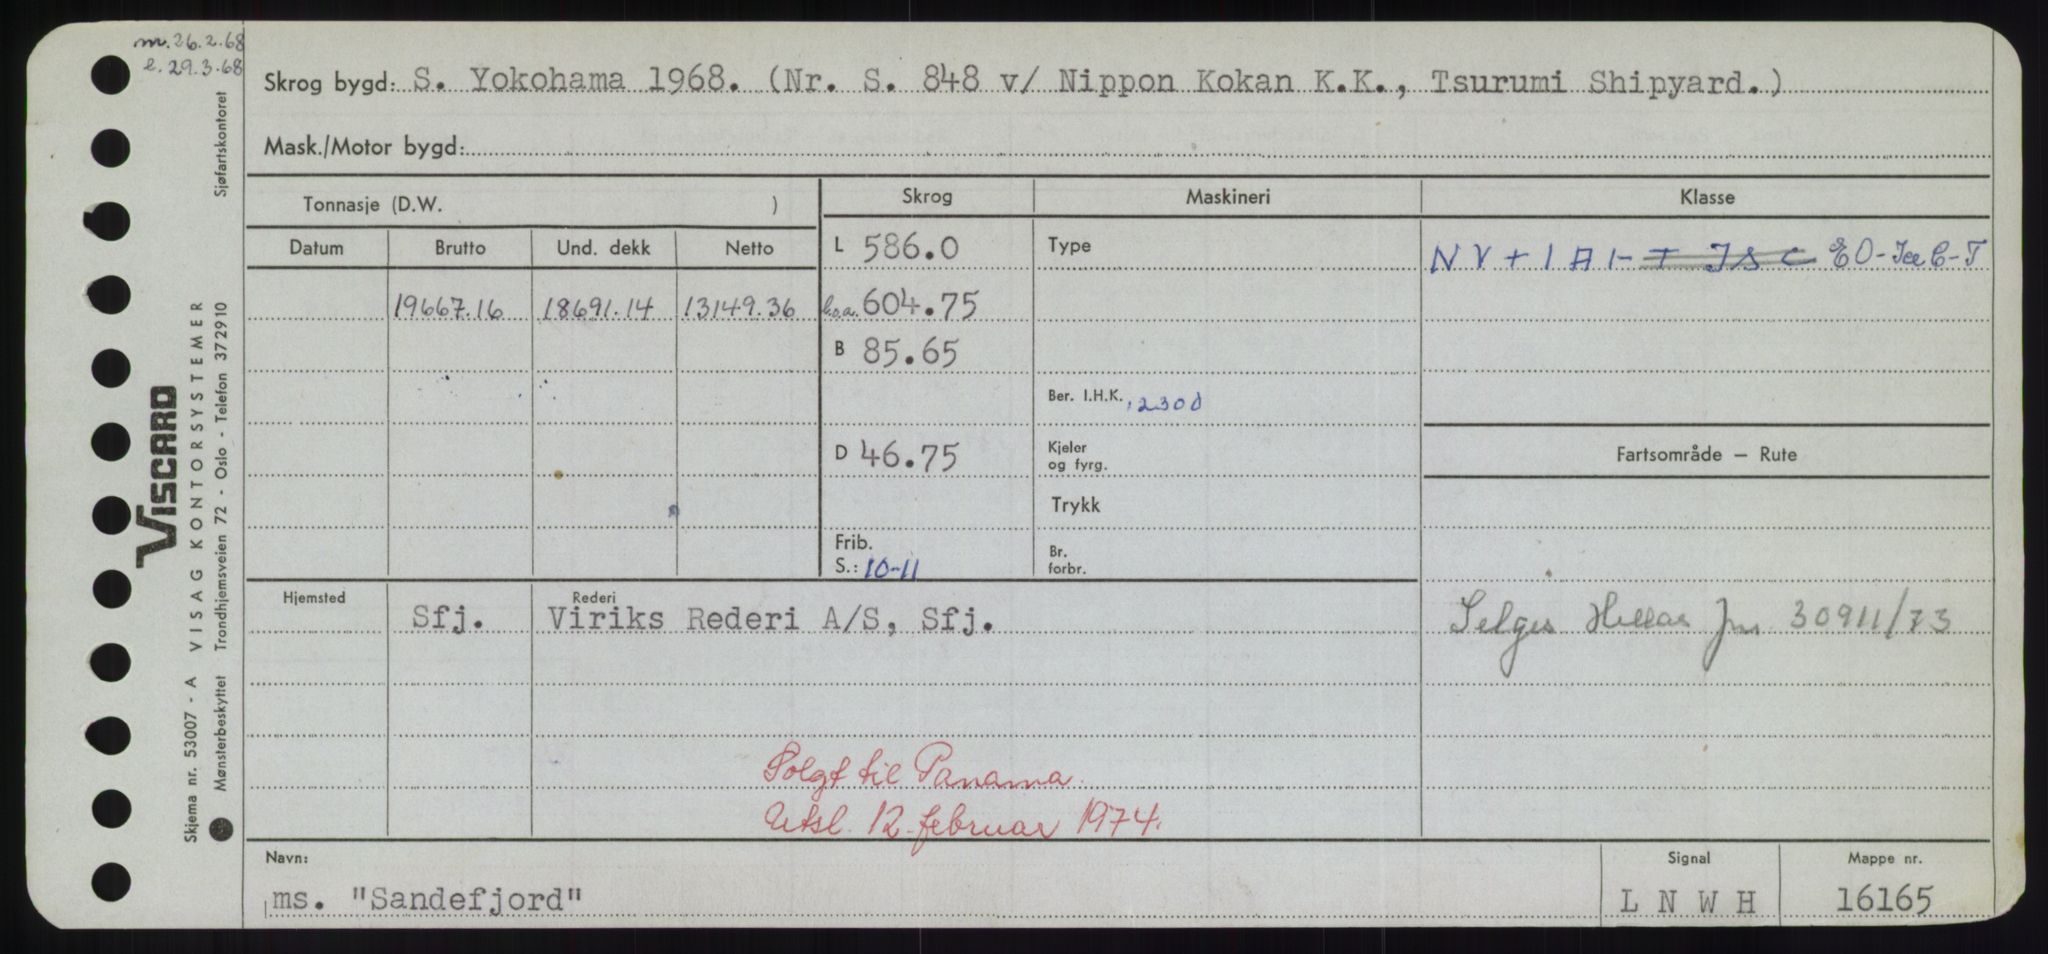 m. 26.2.68
l. 29.3.68
Skrog bygd: S. Yokohama 1968. (Nr. S. 848 v/ Nippon Kokan K.K., Tsurumi Shipyard.)
Mask./Motor bygd:
Tonnasje (D.W. )
Skrog
Maskineri
Klasse
Datum Brutto Und. dekk Netto
L 586.0
Type
NV + 1 A 1 - T ISC EO-Ice C-T
19667.16 18691.14 13149.36
l.o.a. 604.75
B 85.65
Ber. I.H.K. 12300
D 46.75
Kjeler
og fyrg.
Fartsområde — Rute
Trykk
Frib.
S.: 10-11
Br.
forbr.
Hjemsted
Sfj.
Rederi
Viriks Rederi A/S, Sfj.
Selges Hellas Jnr 30911/73
Solgt til Panama.
Utsl. 12. februar 1974.
Navn:
ms. "Sandefjord"
Signal
L N W H
Mappe nr.
16165
VISCARD
VISAG KONTORSYSTEMER
Skjema nr. 53007 - A
Mønsterbeskyttet Trondhjemsveien 72 - Oslo - Telefon 372910 Sjøfartskontoret